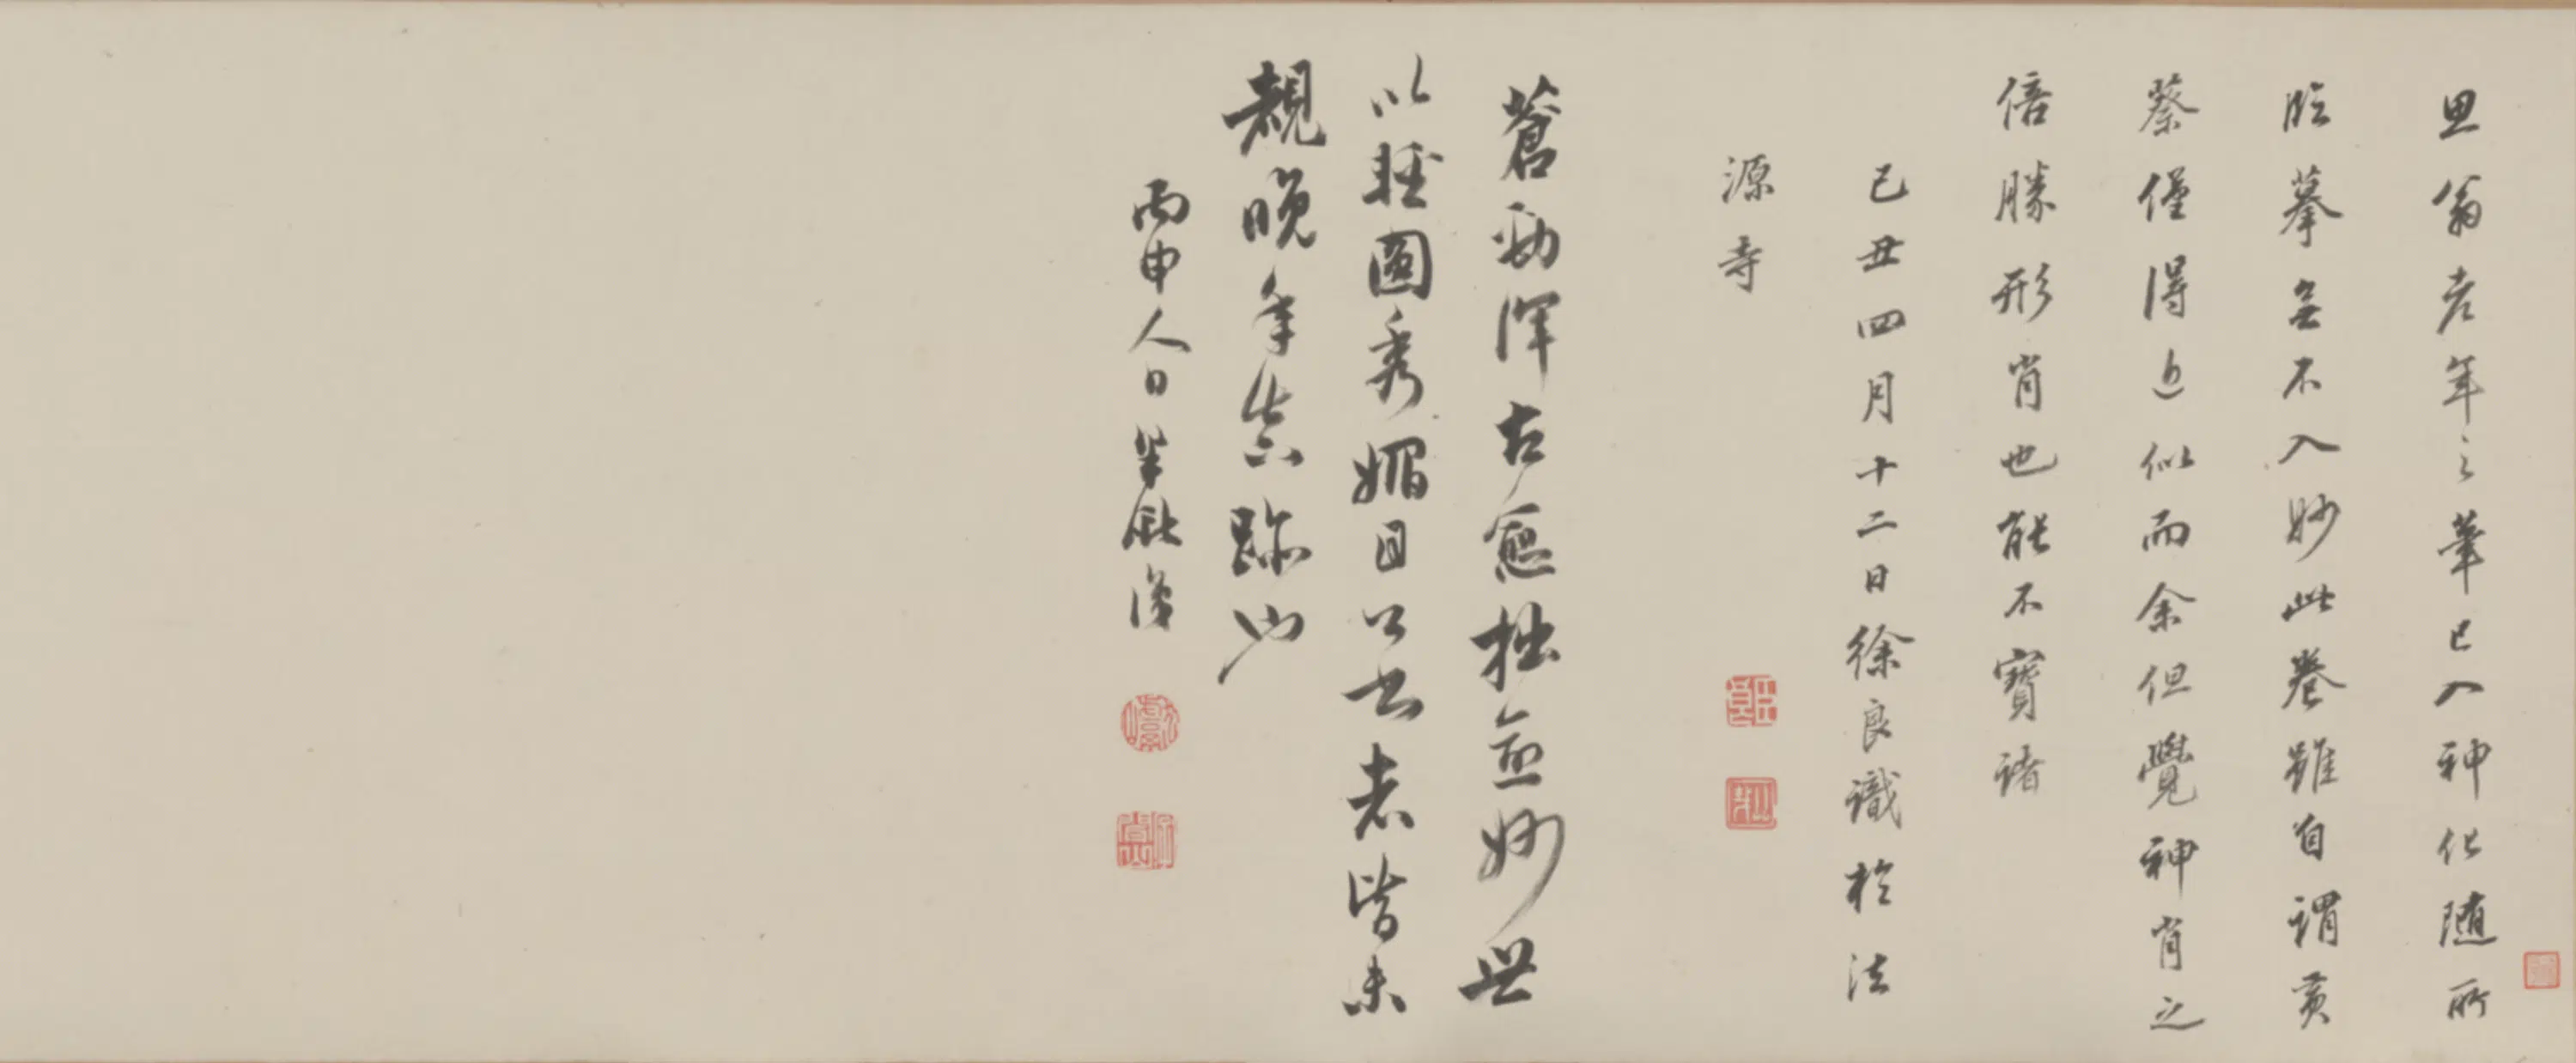 思翁老年之筆已入神化隨所
臨摹無不入妙此卷雖自謂黃
蔡僅得近似而余但覺神肖之
倍勝形肖也能不寶諸
己丑四月十二日徐良識於法
源寺
蒼勁渾古愈拙愈妙世
以輕圓秀媚目公書者皆未
覩晚年真跡也
丙申人日